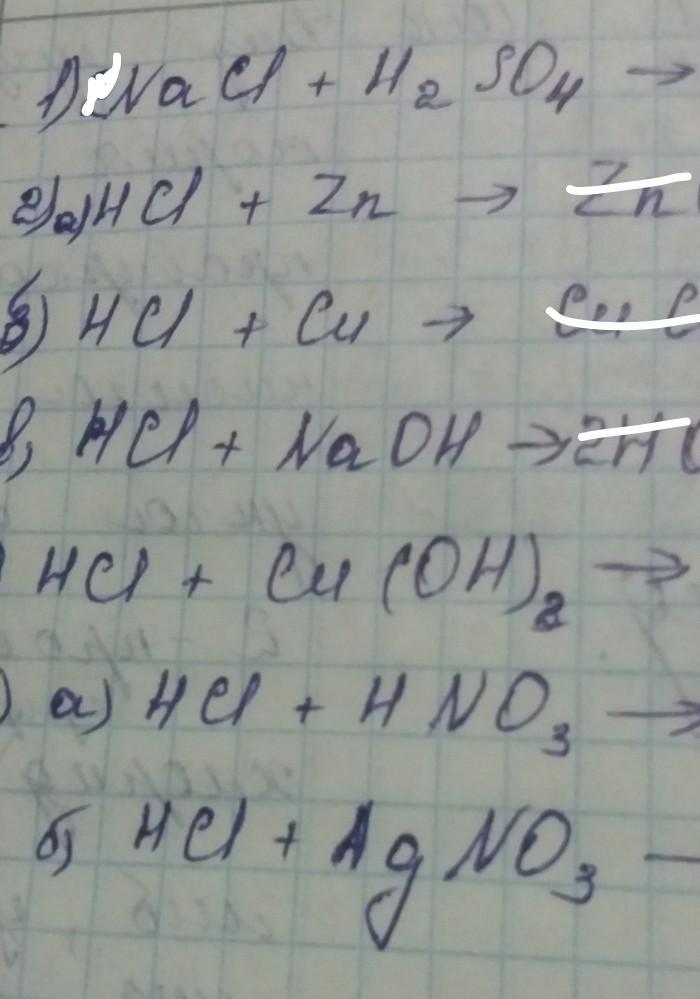 1) NaCl + H₂SO₄ →
2) a) HCl + Zn → Zn
б) HCl + Cu → CuC
в) HCl + NaOH → 2H
) HCl + Cu(OH)₂ →
) а) HCl + HNO₃ →
б) HCl + AgNO₃ —